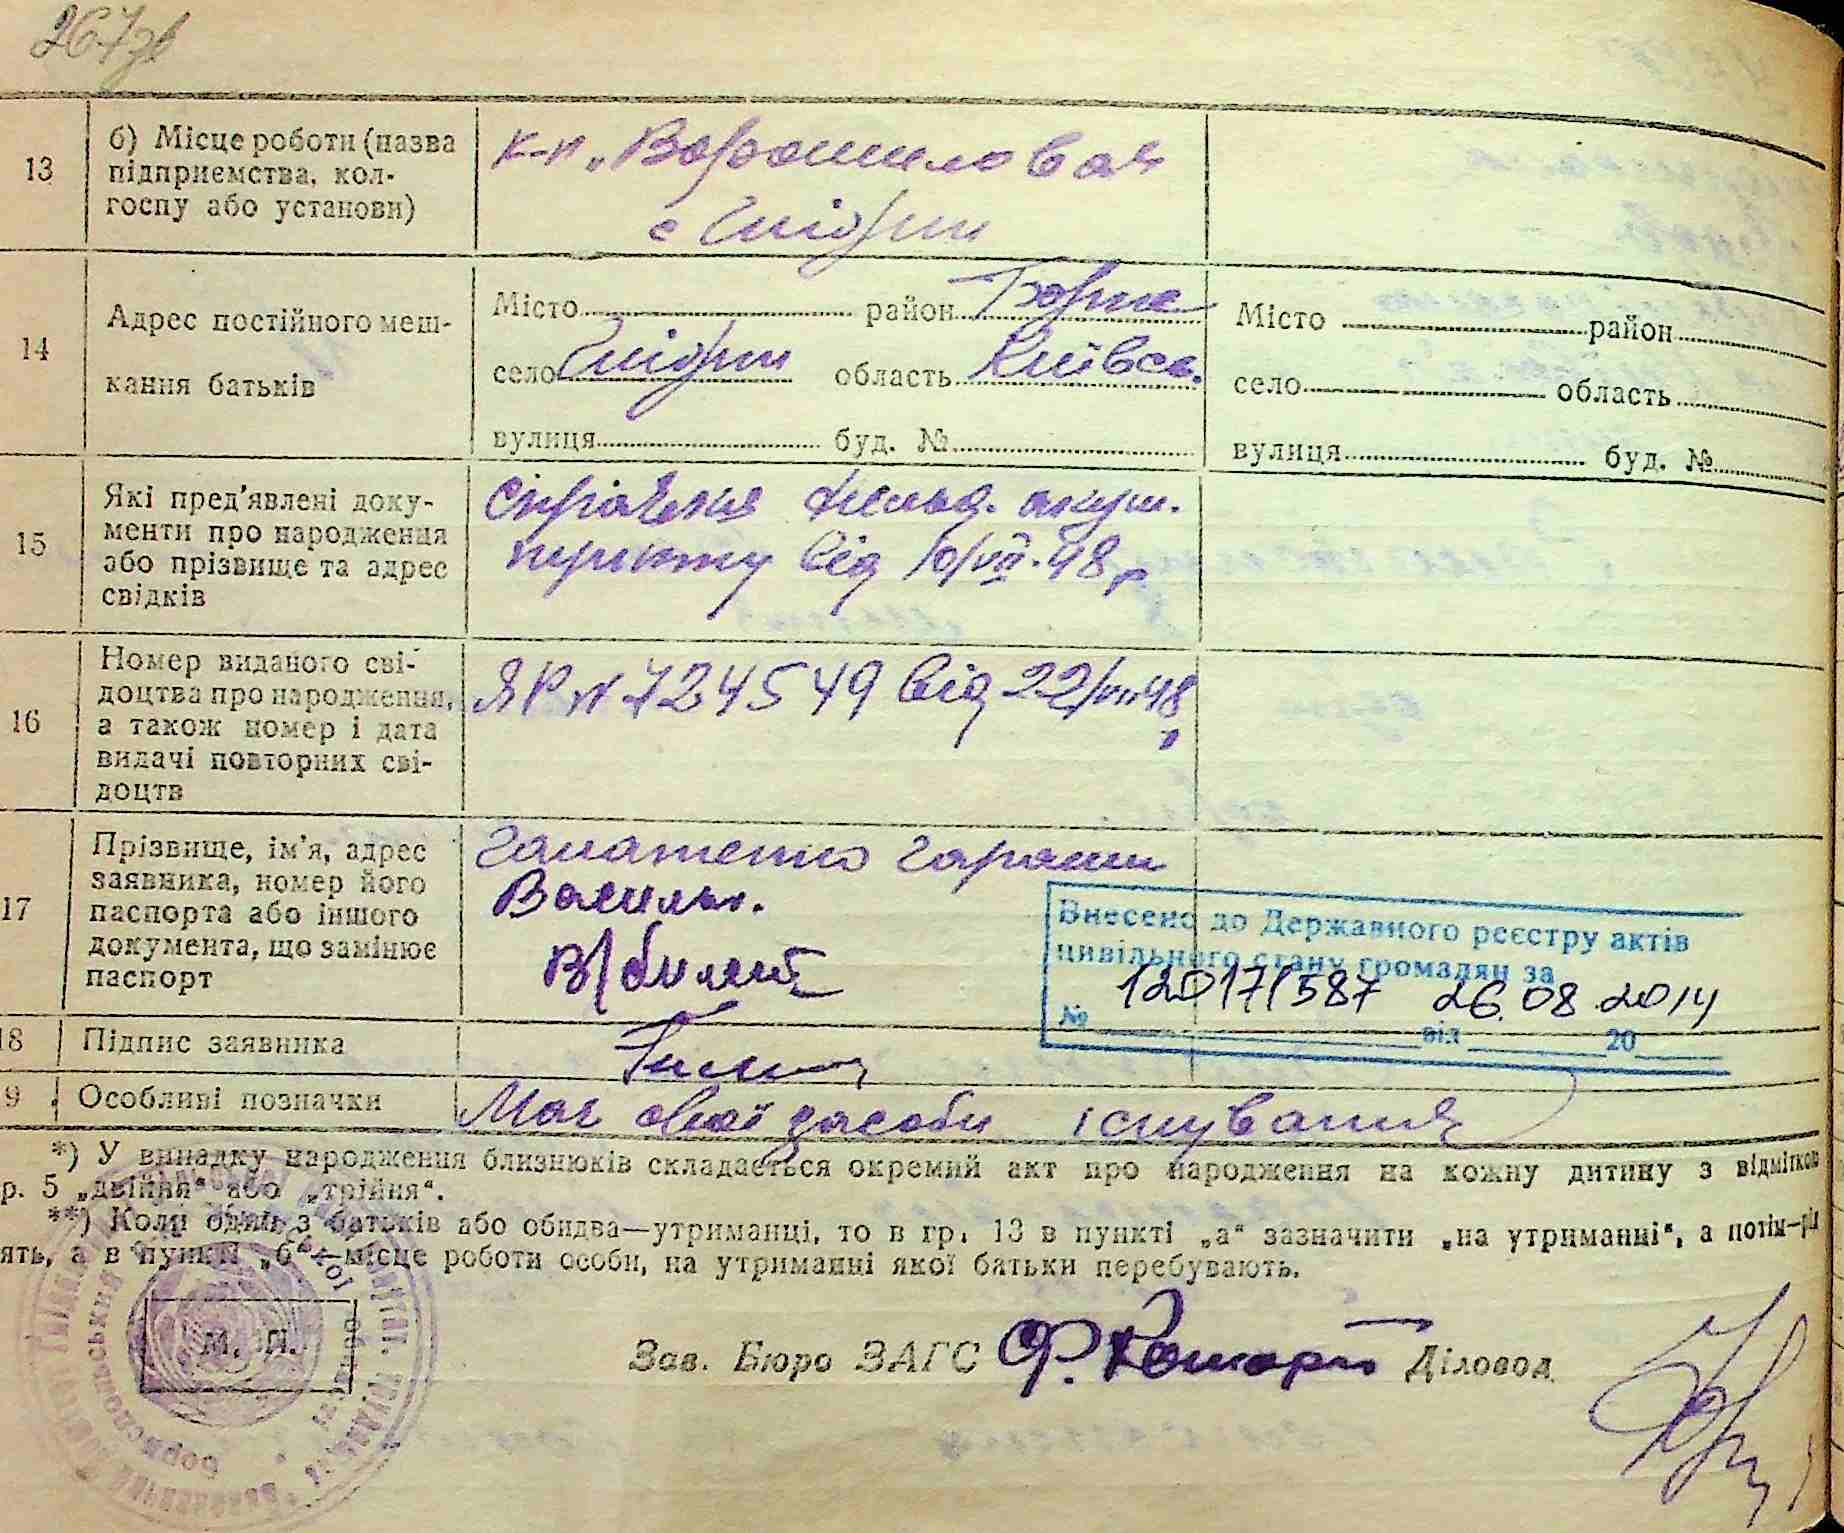 267зв
13 б) Місце роботи (назва підприємства, кол-
госпу або установи)
к-п „Ворошилова"
с Гнідин
14 Адрес постійного меш-
кання батьків
Місто район Борисп
село Гнідин область Київск.
вулиця буд. №
Місто район
село область
вулиця буд. №
15 Які пред'явлені доку-
менти про народження
або прізвище та адрес
свідків
Справка фельд. акуш.
пункту від 10/VII-48 р
16 Номер виданого сві-
доцтва про народження,
а також номер і дата
видачі повторних сві-
доцтв
ЯР № 724549 від 22/VII 48
17 Прізвище, ім'я, адрес
заявника, номер його
паспорта або іншого
документа, що замінює
паспорт
Васильк.
В/билет
Внесено до Державного реєстру актів
цивільного стану громадян за
№ 12017/587 від 26.08.2014
20
18 Підпис заявника
9 Особливі позначки
Має свої засоби існування
*) У випадку народження близнюків складається окремий акт про народження на кожну дитину з відміткою
р. 5 „двійня" або „трійня".
**) Коли один з батьків або обидва—утриманці, то в гр. 13 в пункті „а" зазначити „на утриманні", а потім
ять, а в пункті „б"—місце роботи особи, на утриманні якої батьки перебувають.
М. П.
Зав. Бюро ЗАГС
Діловод